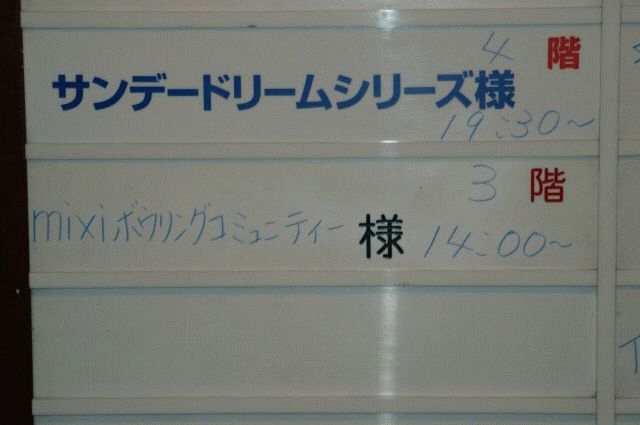 4 階
サンデードリームシリーズ様
19:30~
3 階
mixiボウリングコミュニティー 様 14:00~